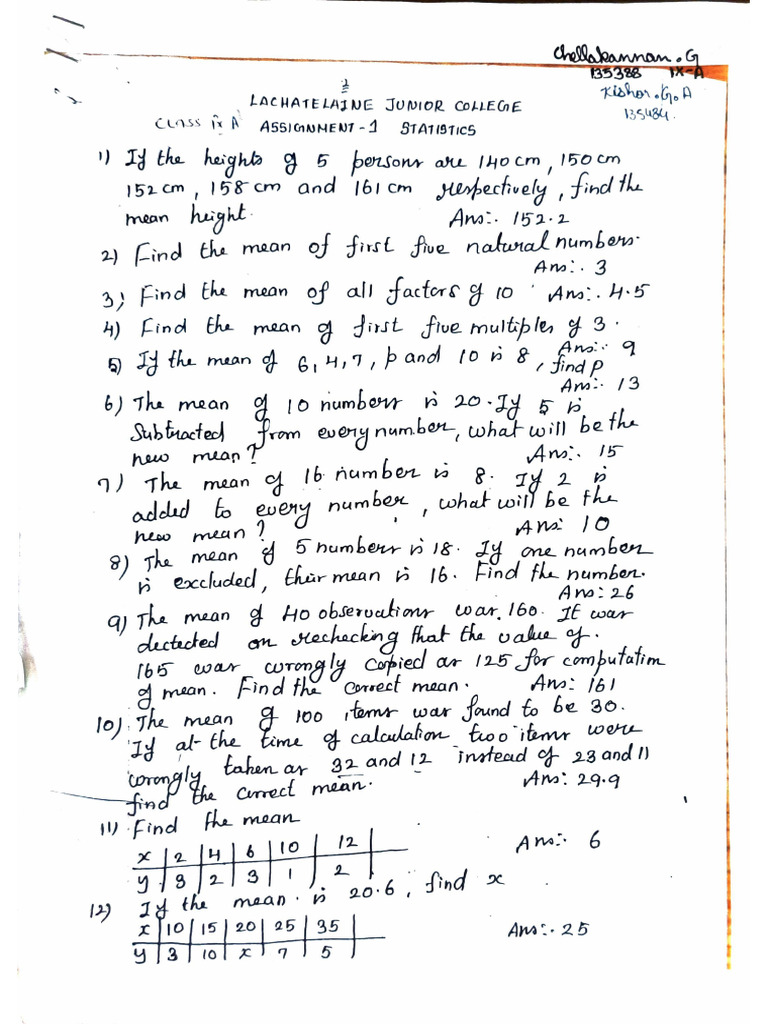 Chellakannan.G
135388 IX-A
Kishor.G.A
135484.
LACHATELAINE JUNIOR COLLEGE
CLASS IX A ASSIGNMENT-1 STATISTICS
1) If the heights of 5 persons are 140 cm, 150 cm
152 cm, 158 cm and 161 cm respectively, find the
mean height. Ans:. 152.2
2) Find the mean of first five natural numbers.
Ans:. 3
3) Find the mean of all factors of 10 Ans:. 4.5
4) Find the mean of first five multiples of 3.
Ans:. 9
5) If the mean of 6, 4, 7, p and 10 is 8, find p
Ans:. 13
6) The mean of 10 numbers is 20. If 5 is
Subtracted from every number, what will be the
new mean? Ans:. 15
7) The mean of 16 number is 8. If 2 is
added to every number, what will be the
new mean? Ans: 10
8) The mean of 5 numbers is 18. If one number
is excluded, their mean is 16. Find the number.
Ans: 26
9) The mean of 40 observations was. 160. It was
dectected on rechecking that the value of.
165 was wrongly copied as 125 for computation
of mean. Find the correct mean. Ans: 161
10) The mean of 100 items was found to be 30.
If at the time of calculation two items were
wrongly taken as 32 and 12 instead of 23 and 11
find the correct mean. Ans: 29.9
11) Find the mean
x 2 4 6 10 12 Ans:. 6
y 3 2 3 1 2
12) If the mean is 20.6, find x
x 10 15 20 25 35 Ans:. 25
y 3 10 x 7 5